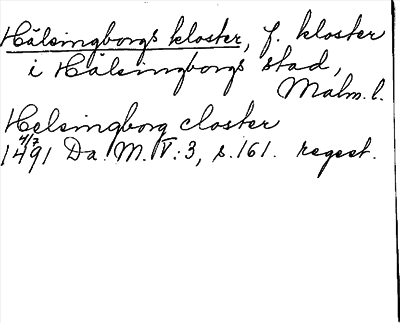 Hälsingborgs kloster, f. kloster
i Hälsingborgs stad,
Malm. l.
Helsingborg closter
4/7
1491 Da. M. V:3, s. 161. regest.